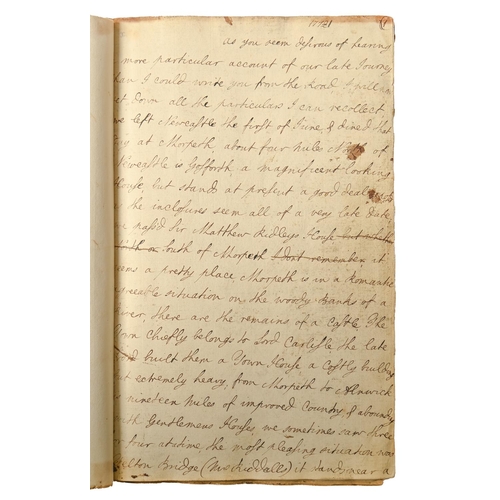 as you seem desirous of hearing
more particular account of our late Journey
than I could write you from the Road I shall now
set down all the particulars I can recollect
we left Newcastle the first of June, & dined that
Day at Morpeth, about four miles North of
Newcastle is Gosforth, a magnificent looking
House, but stands at present a good deal
as the inclosures seem all of a very late date
we pass'd Sir Matthew Ridleys House but whether
North or South of Morpeth I don't remember it
seems a pretty place, Morpeth is in a Romantic
agreeable situation on the woody Banks of a
River, there are the remains of a Castle. The
Town Chiefly belongs to Lord Carlisle the late
Lord built them a Town House a Costly building
but extremely heavy, from Morpeth to Alnwick
is nineteen miles of improved Country & abounds
with Gentlemens Houses, we sometimes saw three
or four at a time the most pleasing situation was
Felton Bridge (Mr Riddalls) it stands near a